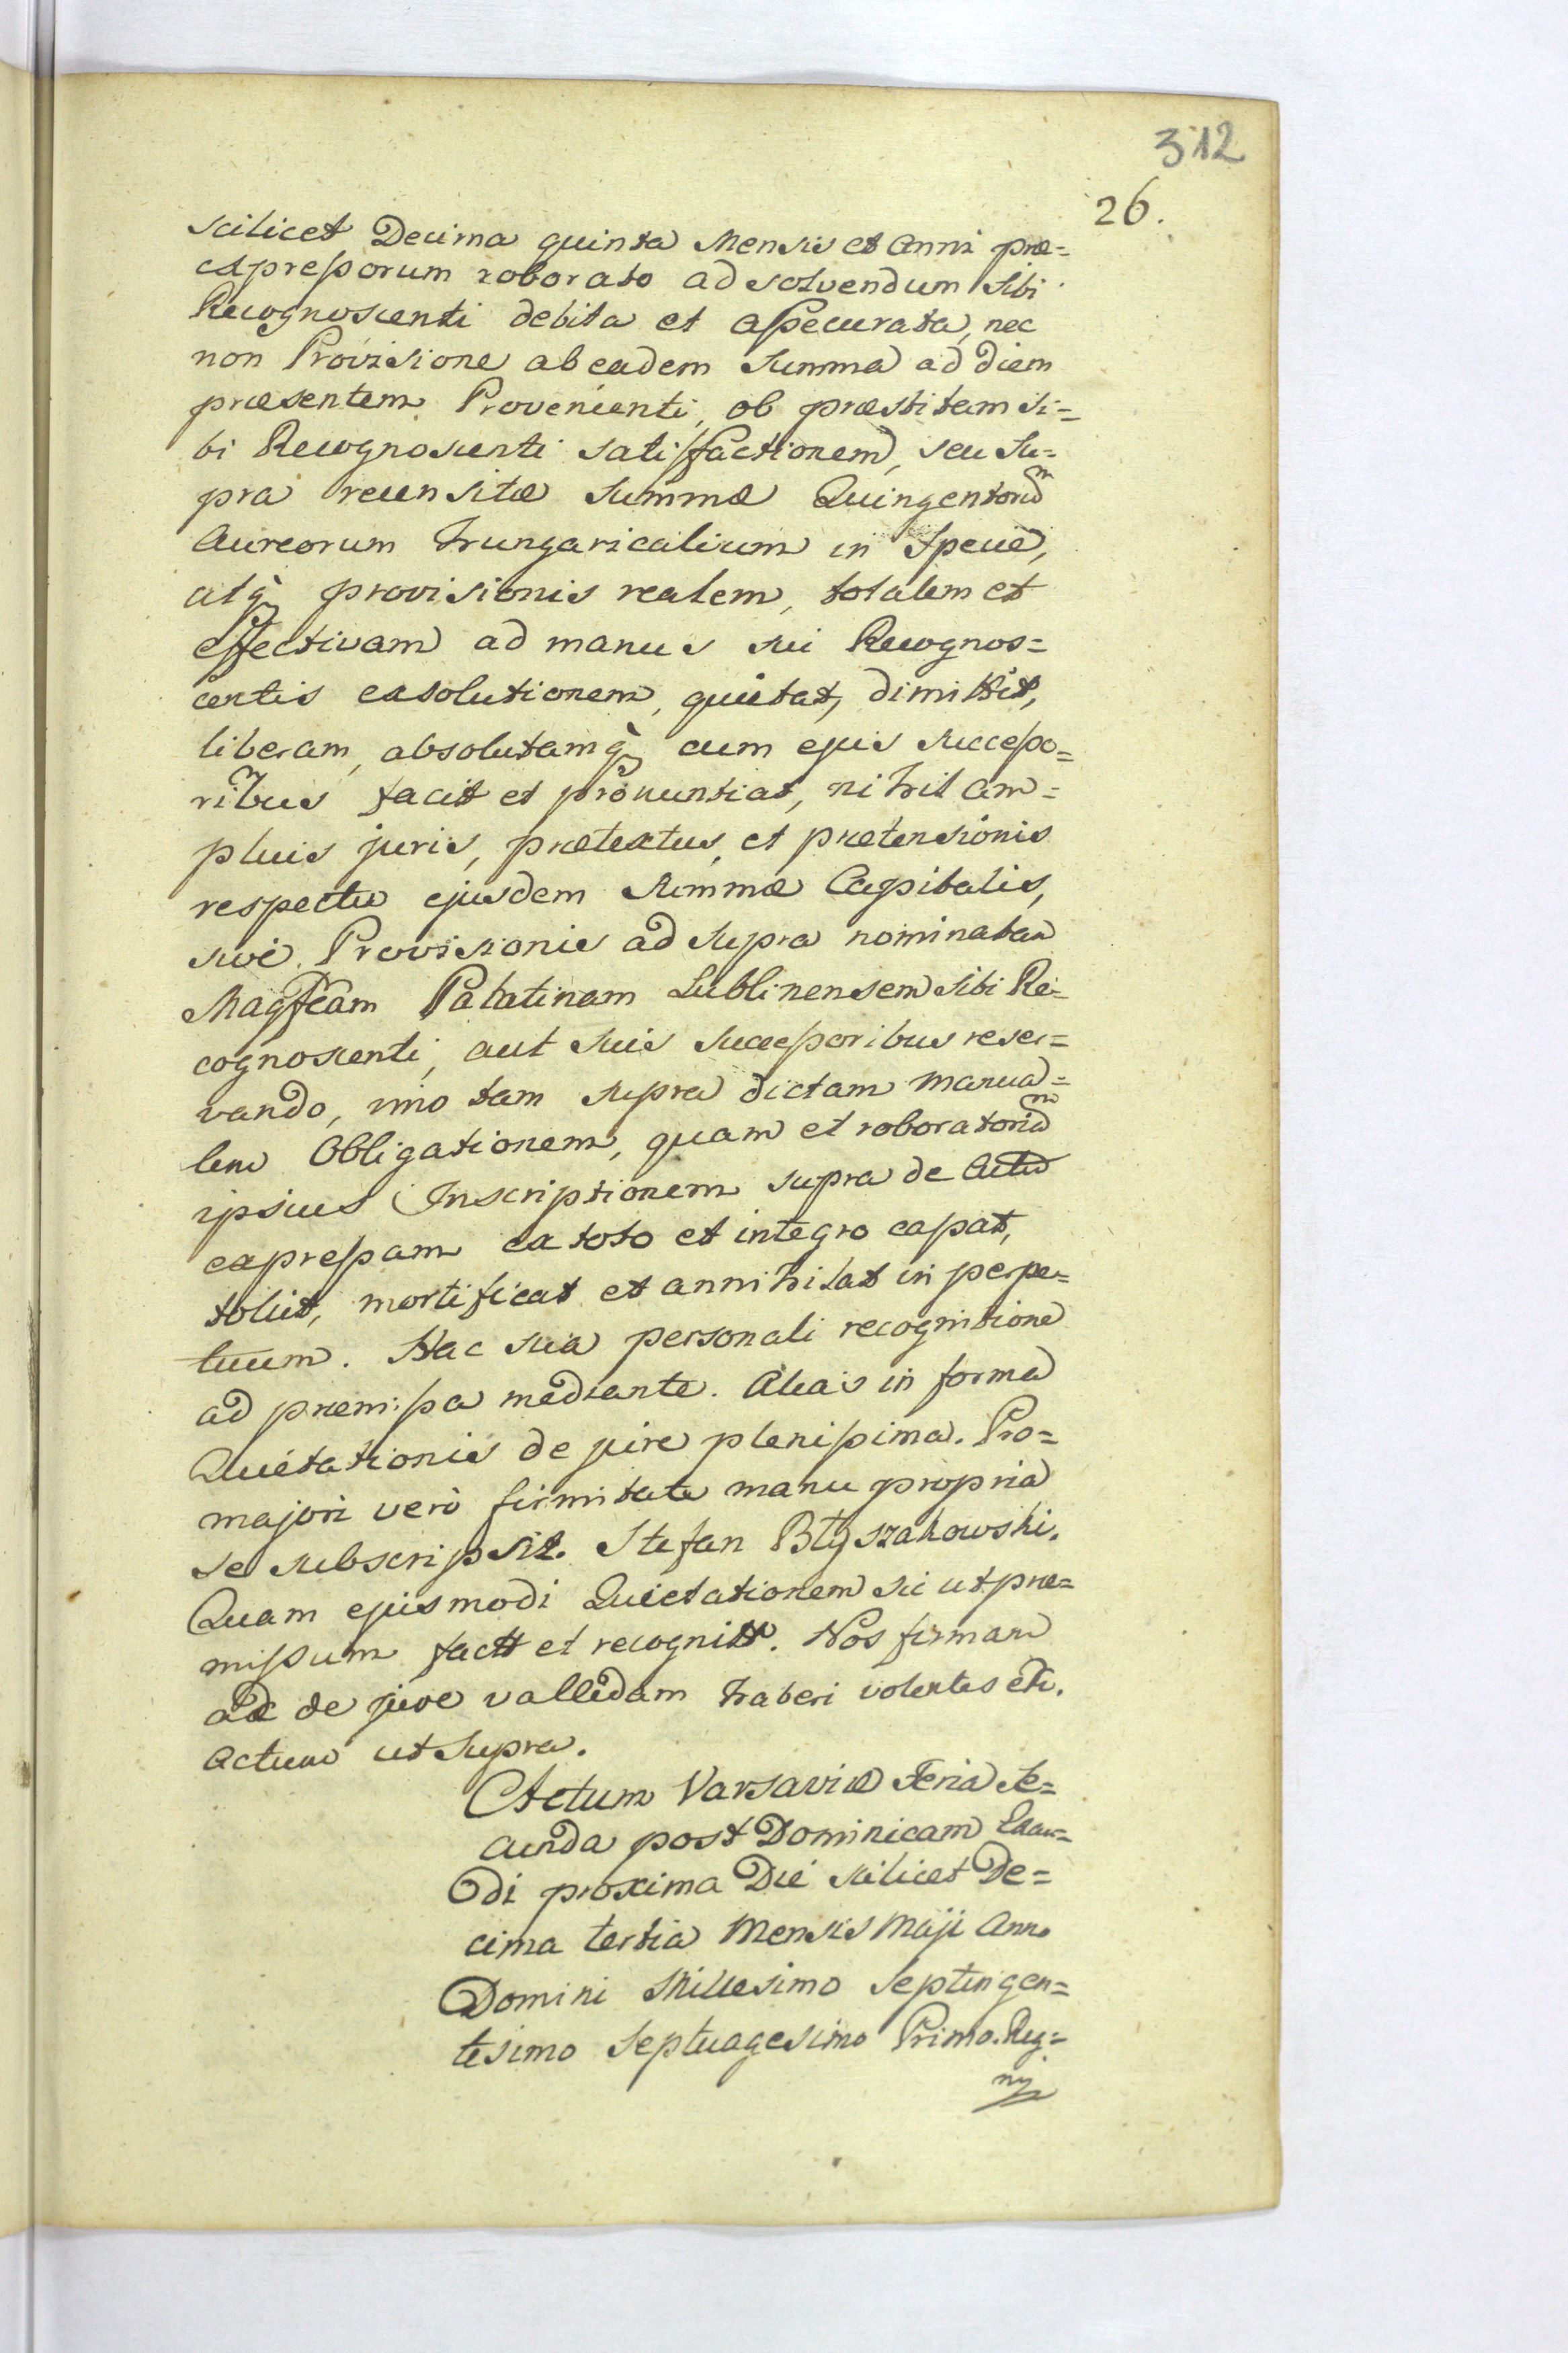 312
26.
scilicet Decima quinta Mensis et Anni præ=
expressorum roborato ad solvendum sibi
Recognoscenti debita et assecurata, nec
non Provisione ab eadem summa ad diem
præsentem Provenienti, ob præstitam si=
bi Recognoscenti satisfactionem, seu su=
pra recensitæ summæ Quingentorum
Aureorum Hungaricalium in Specie,
atq provisionis realem, totalem et
effectivam ad manus sui Recognos=
centis exsolutionem, quietat, dimittit,
liberam, absolutamq cum ejus successo=
ribus facit et pronuntiat, nihil am=
plius juris, prætextus, et prætensionis
respectu ejusdem summæ Capitalis,
sive Provisionis ad supra nominatam
Magfcam Palatinam Lublinensem sibi Re=
cognoscenti, aut suis successoribus reser=
vando, imo tam supra dictam manua=
lem Obligationem, quam et roboratoriam
ipsius Inscriptionem supra de Actu
expressam ex toto et integro cassat,
tollit, mortificat et annihilat in perpe=
tuum. Hac sua personali recognitione
ad præmissa mediante. Alias in forma
Quietationis de jure plenissima. Pro=
majori verò firmitate manu propria
se subscripsit. Stefan Błyszakowski.
Quam ejusmodi Quietationem sic ut præ=
missum factt et recognitt. Nos firmam
ac de jure vallidam haberi volentes etc.
Actum ut supra.
Actum Varsaviæ Feria Se=
cunda post Dominicam Exau=
di proxima Die scilicet De=
cima tertia Mensis Maji Anno
Domini Millesimo Septingen=
tesimo Septuagesimo Primo. Reg=
ni